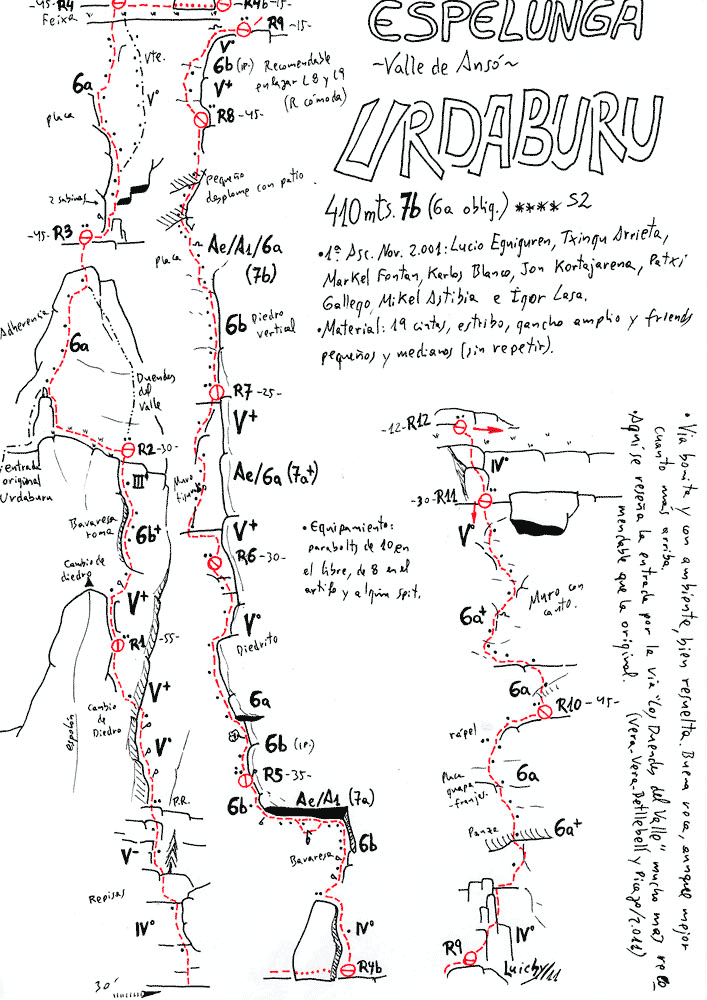 ESPELUNGA
~Valle de Ansó~
URDABURU
410 mts. 7b (6a oblig.) **** S2
•1ª Asc. Nov. 2.001: Lucio Eguiguren, Txingu Arrieta,
Markel Fontan, Karlos Blanco, Jon Kortajarena, Patxi
Gallego, Mikel Astibia e Igor Lasa.
•Material: 19 cintas, estribo, gancho amplio y friends
pequeños y medianos (sin repetir).
-45- R4
Feixa
Vte.
6a
Vº
placa
2 sabinas
-45- R3
Adherencia
6a
Duendes
del
Valle
R2 -30-
entrada
original
Urdaburu
III⁺
Bavaresa
roma
6b⁺
Cambio de
diedro
V⁺
R1 -55-
V⁺
Cambio
de
Diedro
espolón
Vº
P.R.
V⁻
Repisas
IVº
30'
R4b -15-
R9 -15-
Vº
6b (1p.)
V⁺
Recomendable
enlazar L8 y L9
(R cómoda)
R8 -45-
pequeño
desplome con patio
placa
Ae/A1/6a
(7b)
6b
Diedro
vertical
R7 -25-
V⁺
Muro
Ae/6a (7a⁺)
V⁺
R6 -30-
Vº
Diedrito
6a
6b (1p.)
R5 -35-
6b
Ae/A1 (7a)
Bavaresa
6b
IVº
R4b
•Equipamiento:
parabolts de 10 en
el libre, de 8 en el
artifo y algún spit.
-12- R12
IVº
-30- R11
Vº
Muro con
canto.
6a⁺
6a
R10 -45-
rápel
Placa
guapa
franjas.
6a
Panza
6a⁺
R9
IVº
Luichy
• Via bonita y con ambiente, bien resuelta. Buena roca, aunque mejor
cuanto mas arriba.
•Aquí se reseña la entrada por la via "Los Duendes del Valle" mucho mas reco_
mendable que la original.
(Vera-Vera-Petillebell y Picazo/2.011)